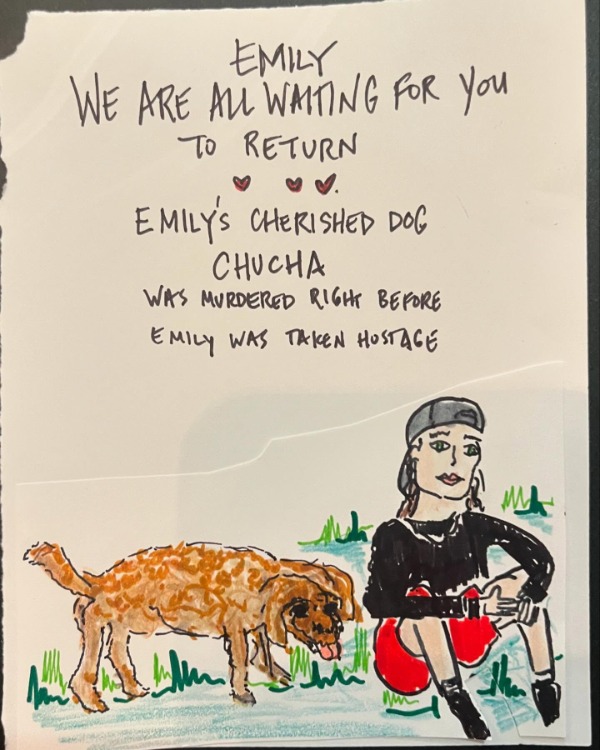 EMILY
WE ARE ALL WAITING FOR YOU
TO RETURN
EMILY'S CHERISHED DOG
CHUCHA
WAS MURDERED RIGHT BEFORE
EMILY WAS TAKEN HOSTAGE